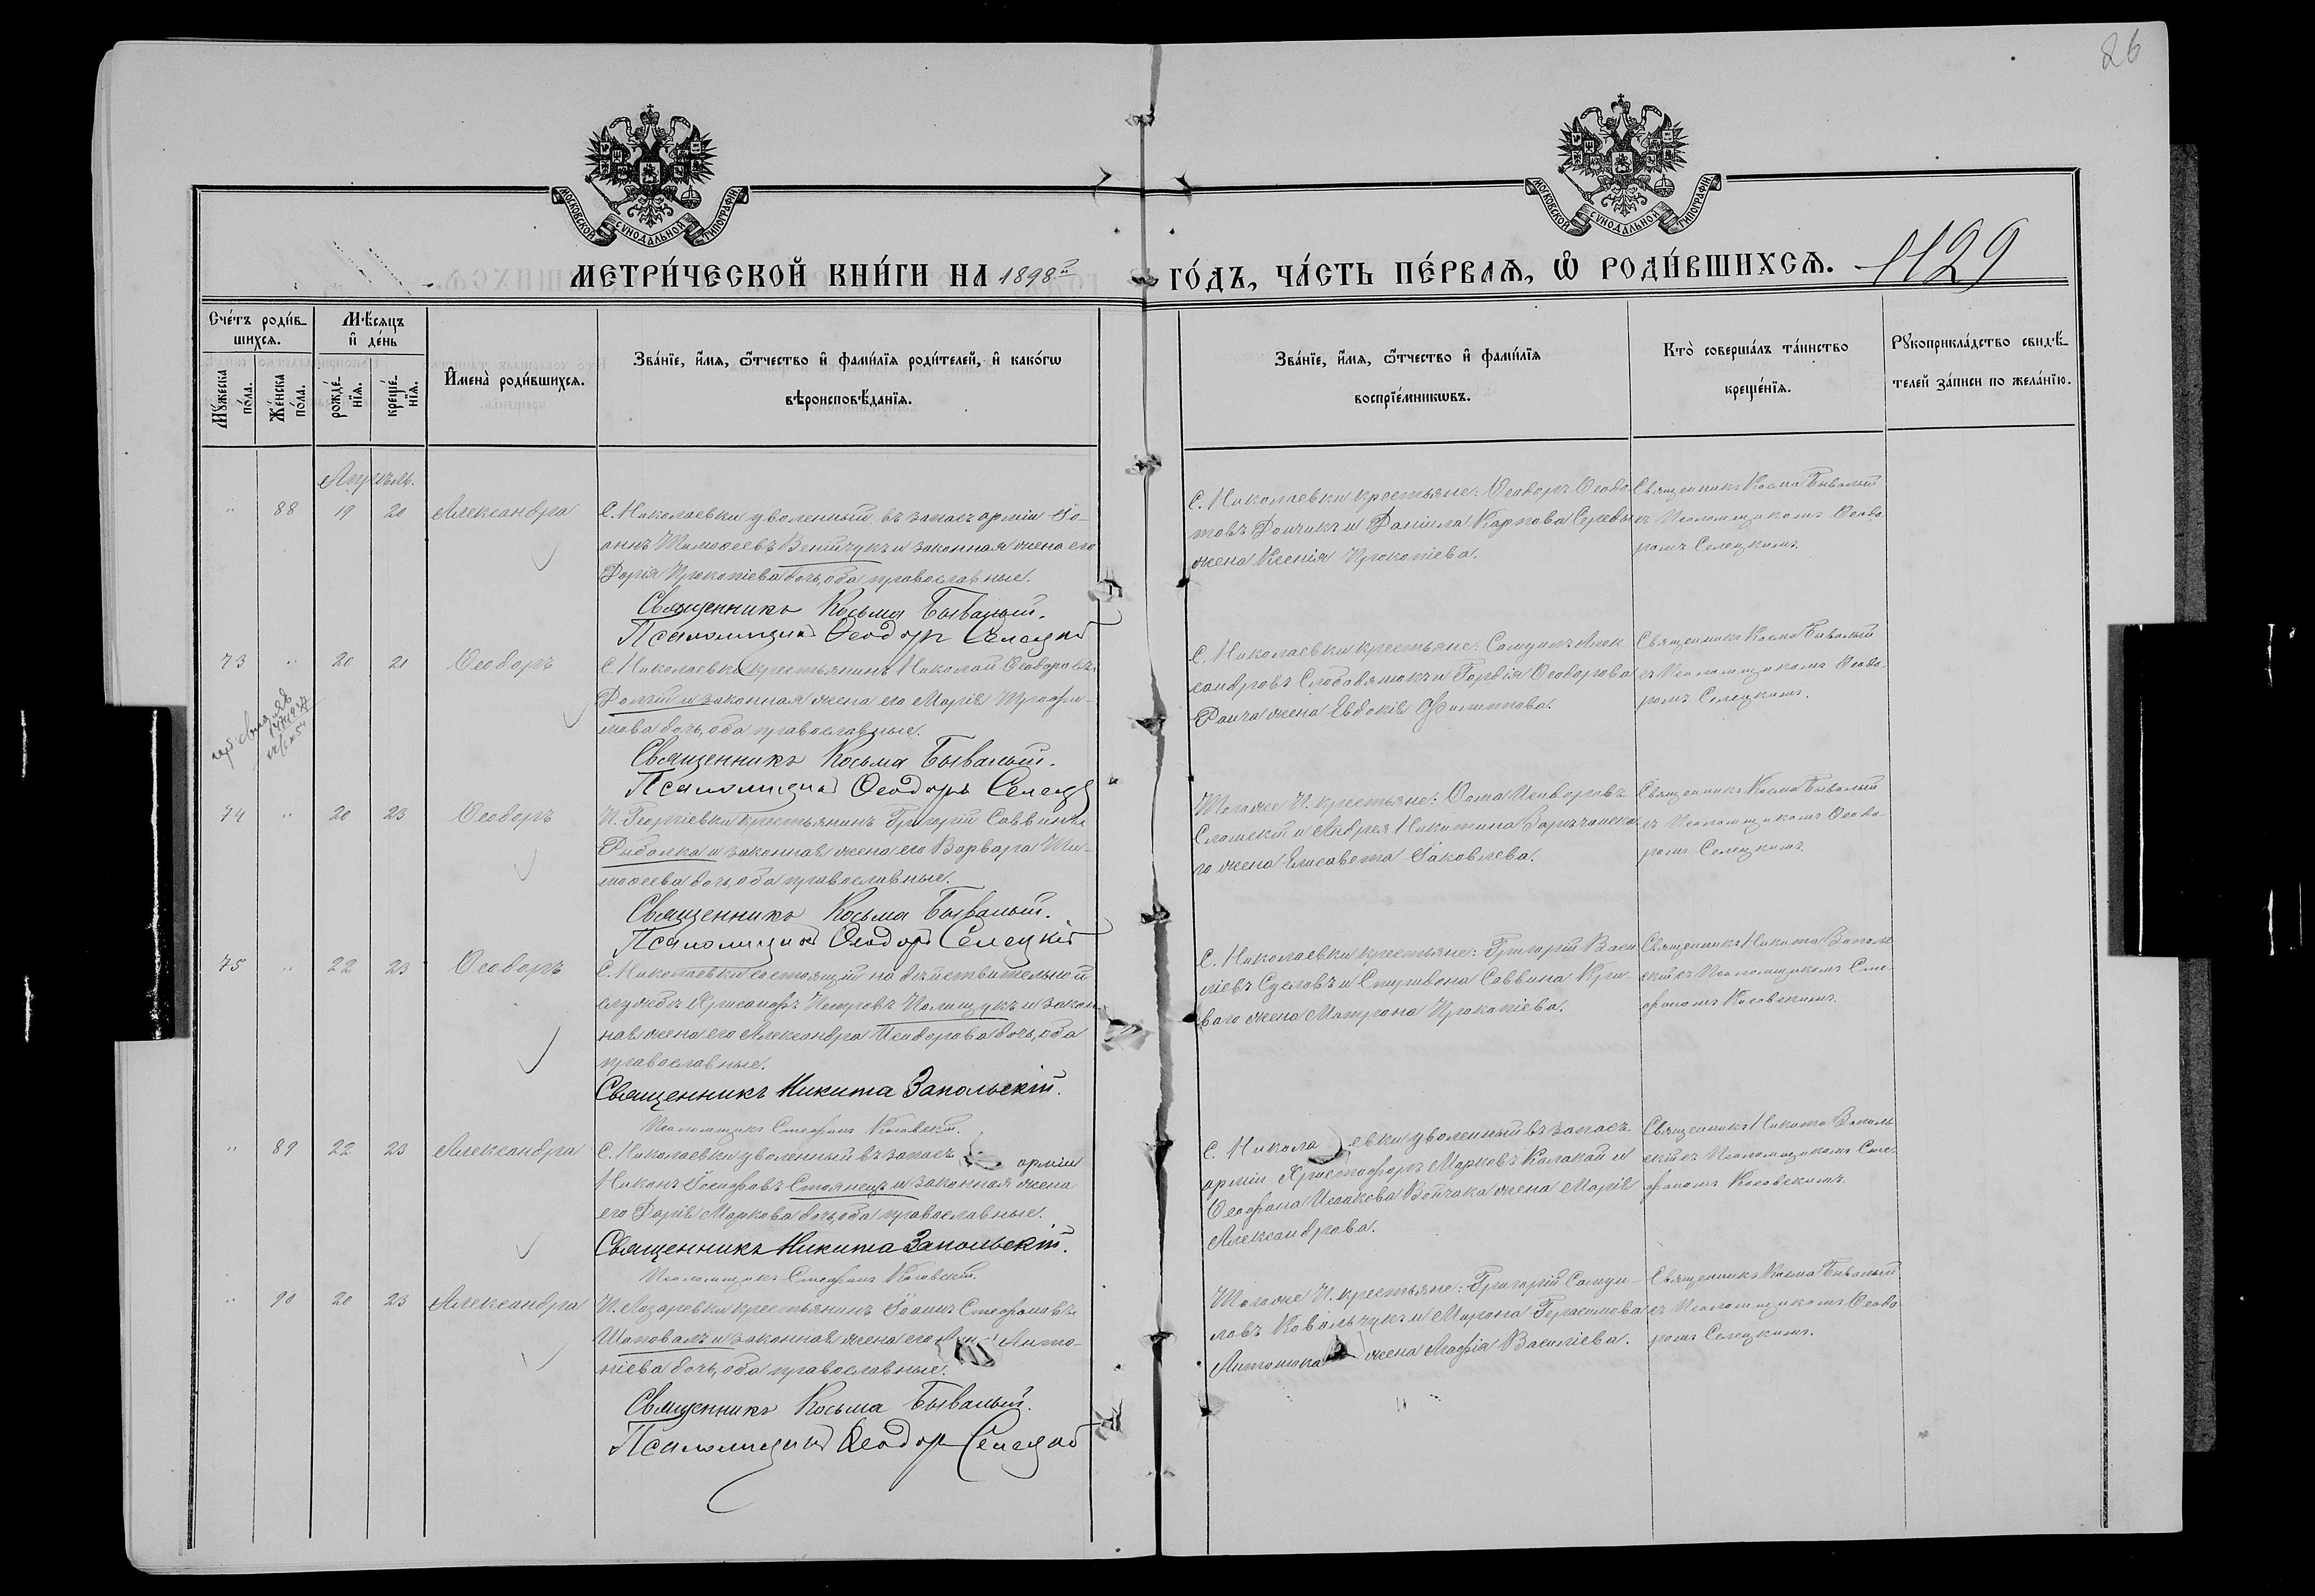 26
МОСКОВСКОЙ СѴНОДАЛЬНОЙ ТИПОГРАФІИ
МОСКОВСКОЙ СѴНОДАЛЬНОЙ ТИПОГРАФІИ
МЕТРИ́ЧЕСКОЙ КНИ́ГИ НА 1898й ГО́ДЪ, ЧА́СТЬ ПЕ́РВАѦ, Ѡ҆ РОДИ́ВШИХСѦ.
1129
Сче́тъ роди́в-
шихсѧ.
Мꙋ́жеска по́ла.
Же́нска по́ла.
Мѣ́сѧцъ и҆ де́нь
рожде́-нїѧ.
креще́-нїѧ.
И҆мена̀ роди́вшихсѧ.
Зва́нїе, и҆́мѧ, ѻ҆́тчество и҆ фами́лїѧ роди́телей, и҆ како́гѡ
вѣроисповѣ́данїѧ.
Зва́нїе, и҆́мѧ, ѻ҆́тчество и҆ фами́лїѧ
воспрїе́мникѡвъ.
Кто̀ соверша́лъ та́инство
креще́нїѧ.
Рꙋкоприкла́дство свидѣ́-
телей за́писи по жела́нїю.
Апрѣль.
" 88 19 20 Александра
С. Николаевки уволенный въ запасъ арміи Іо-
аннъ Тимоѳеевъ Венчукъ и законная жена его
Дарія Прокопіева дочь, оба православные.
Священникъ Косьма Бывалый.
Псаломщикъ Ѳеодоръ Селецкій
С. Николаевки крестьяне: Ѳеодоръ Ѳеодо-
товъ Дончикъ и Даніила Карпова Середы
жена Ксенія Прокопіева.
Священникъ Косма Бывалый
съ Псаломщикомъ Ѳеодо-
ромъ Селецкимъ.
73 " 20 21 Ѳеодоръ
С. Николаевки крестьянинъ Николай Ѳеодоровъ
Долгій и законная жена его Марія Трофи-
мова дочь, оба православные.
Священникъ Косьма Бывалый.
Псаломщикъ Ѳеодоръ Селецкій
С. Николаевки крестьяне: Самуилъ Алек-
сандровъ Слободянюкъ и Ѳеодорова
жена Евдокія Филиппова.
Священникъ Косма Бывалый
съ Псаломщикомъ Ѳеодо-
ромъ Селецкимъ.
74 " 20 23 Ѳеодоръ
П. Георгіевки крестьянинъ Григорій Саввинъ
Рыбалка и законная жена его Варвара Ти-
моѳеева дочь, оба православные.
Священникъ Косьма Бывалый.
Псаломщикъ Ѳеодоръ Селецкій
Того же П. крестьяне: Ѳома Исидоровъ
и Андрея Никитина
го жена Елисавета Іаковлева.
Священникъ Косма Бывалый
съ Псаломщикомъ Ѳеодо-
ромъ Селецкимъ.
75 " 22 23 Ѳеодоръ
С. Николаевки состоящій на дѣйствительной
службѣ Хрисанфъ Петровъ Полищукъ и закон-
ная жена его Александра Исидорова дочь, оба
православные.
Священникъ Никита Запольскій.
Псаломщикъ Стефанъ Косовскій.
С. Николаевки крестьяне: Григорій Васи-
ліевъ и Спиридона Саввина Кри-
ваго жена Матрона Прокопіева.
Священникъ Никита Заполь-
скій съ Псаломщикомъ Сте-
фаномъ Косовскимъ.
" 89 22 23 Александра
С. Николаевки уволенный въ запасъ арміи
Никонъ Іосифовъ Стоянецъ и законная жена
его Дарія Маркова дочь, оба православные.
Священникъ Никита Запольскій.
Псаломщикъ Стефанъ Косовскій.
С. Николаевки уволенный въ запасъ
арміи Христофоръ Марковъ Калакай и
Ѳеофана Исаакова Войчака жена Марія
Александрова.
Священникъ Никита Заполь-
скій съ Псаломщикомъ Сте-
фаномъ Косовскимъ.
" 90 20 23 Александра
П. Лазаревки крестьянинъ Іоаннъ Стефановъ
Шаповалъ и законная жена его Анто-
ніева дочь, оба православные.
Священникъ Косьма Бывалый.
Псаломщикъ Ѳеодоръ Селецкій
Того же П. крестьяне: Григорій Самуи-
ловъ Ковальчукъ и Мирона Герасимова
Антонюка жена Агафія Василіева.
Священникъ Косма Бывалый
съ Псаломщикомъ Ѳеодо-
ромъ Селецкимъ.